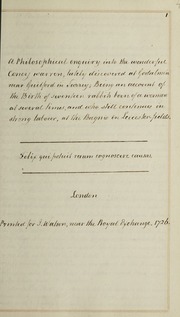 1
A Philosophical enquiry into the wonderful
Coney warren, lately discovered at Godalmin
near Guilford in Surrey; Being an account of
the Birth of seventeen rabbits born of a woman
at several times, and who still continues in
strong labour, at the Bagnio in Leicesterfields.
Felix qui potuit rerum cognoscere causas.
London
Printed for J. Watson, near the Royal Exchange, 1726.